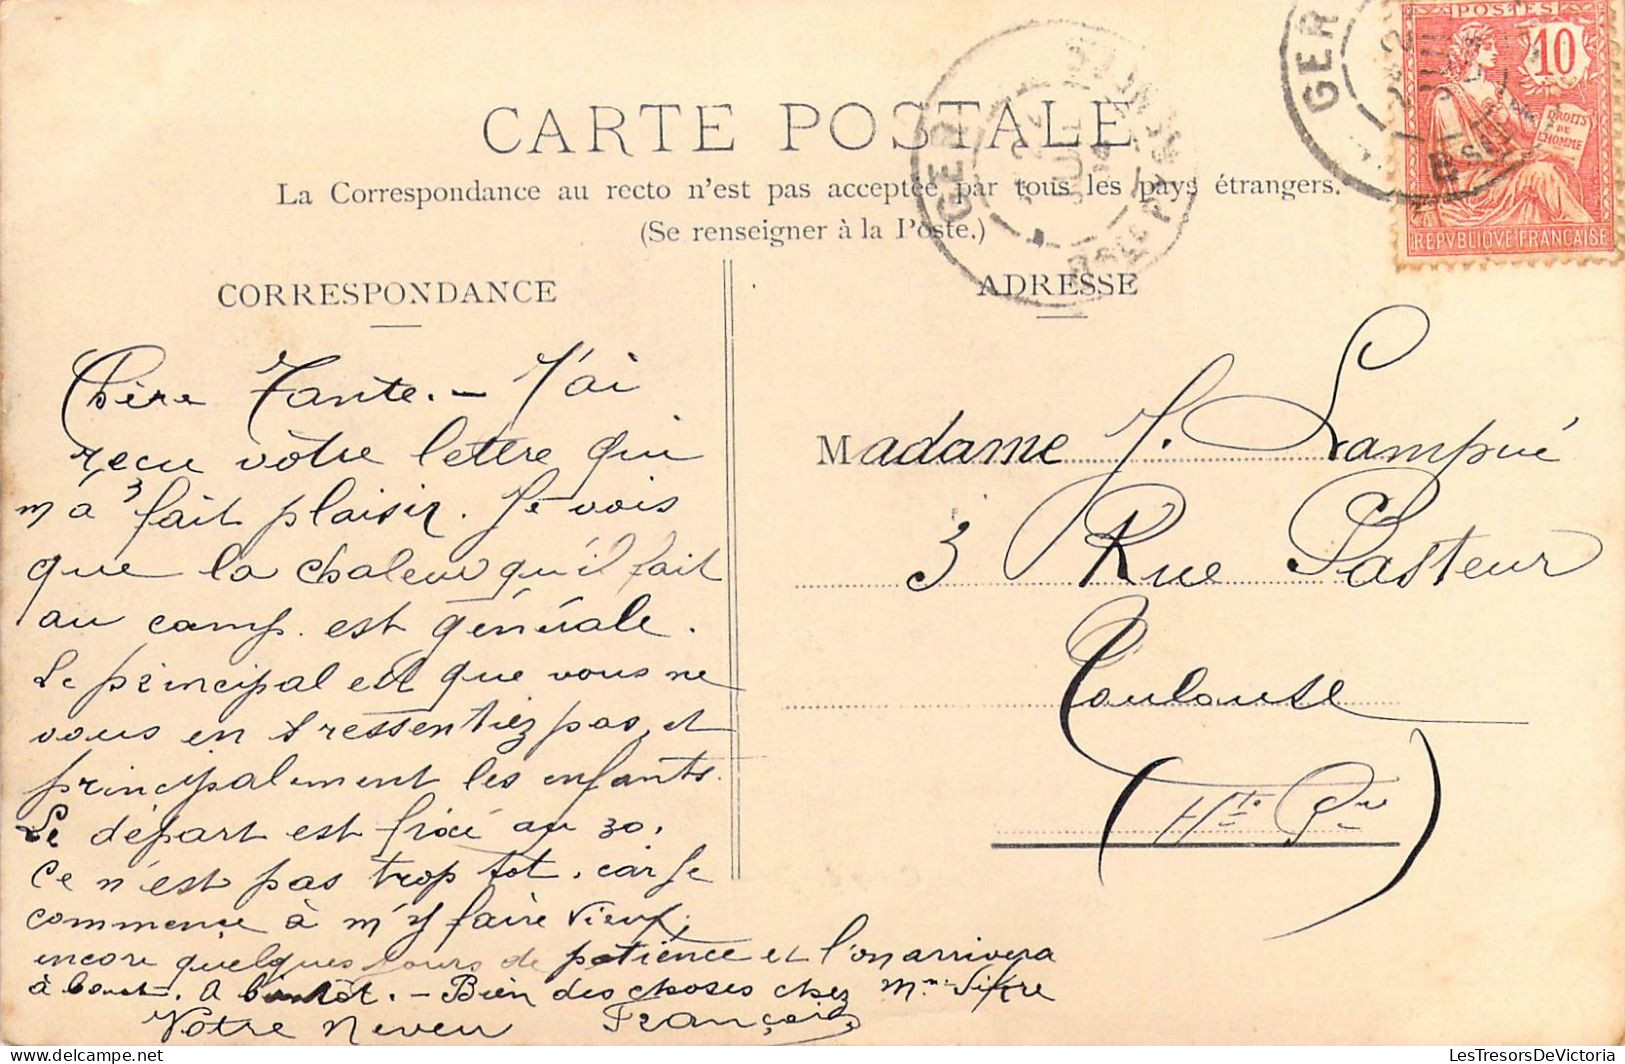 POSTES
10
DROITS
DE
L'HOMME
REPVBLIQVE FRANÇAISE
GER
GER
CARTE POSTALE
La Correspondance au recto n'est pas acceptée par tous les pays étrangers.
(Se renseigner à la Poste.)
CORRESPONDANCE
Chère Tante. — J'ai
reçu vôtre lettre qui
m'a fait plaisir. Je vois
que la chaleur qu'il fait
au camp. est générale.
Le principal est que vous ne
vous en ressentiez pas, et
principalement les enfants.
Le départ est fixé au 30.
Ce n'est pas trop tot, car je
commence à m'y faire vieux,
encore quelques jours de patience et l'on arrivera
à bout. A bientôt. — Bien des choses chez Mme Sitre
Votre neveu François
ADRESSE
Madame J. Lampué
3 Rue Pasteur
Toulouse
(Hte Gne)
LesTresorsDeVictoria